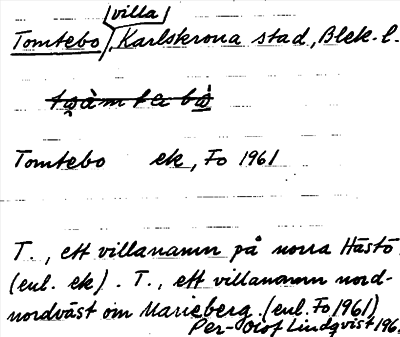 villa
Tomtebo, Karlskrona stad, Blek. l.
Tomtebo ek, Fo 1961
T., ett villanamn på norra Hästö
(enl. ek). T., ett villanamn nord-
nordväst om Marieberg (enl. Fo 1961)
Per-Olof Lindqvist 196